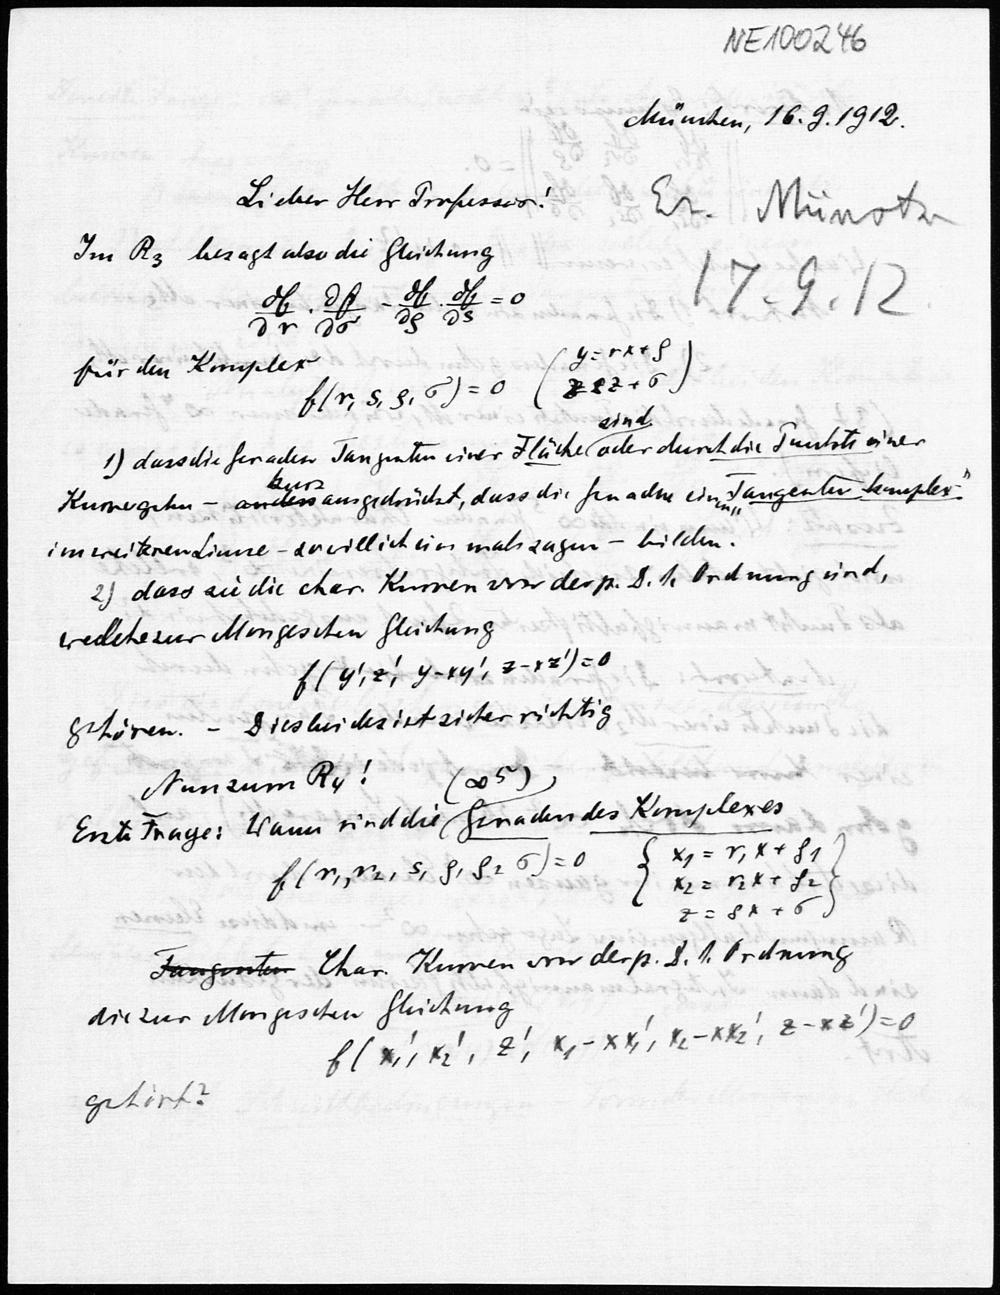 NE100246
München, 16.9.1912.
Lieber Herr Professor!
Er. Münster
17.9.12.
Im R₃ besagt also die Gleichung
∂f/∂r · ∂f/∂σ - ∂f/∂ρ · ∂f/∂s = 0
für den Komplex
f(r, s, ρ, σ) = 0 (y = rx + ρ
z = sx + σ)
1) dass die Geraden Tangenten einer Fläche sind (oder durch die Punkte einer
Kurve gehn – anders kurz ausgedrückt, dass die Geraden einen „Tangentenkomplex"
im weiteren Sinne – so will ich einmal sagen – bilden.
2) dass sie die char. Kurven von der p. D. 1. Ordnung sind,
welche zur Mongeschen Gleichung
f(y', z', y-xy', z-xz') = 0
gehören. – Dies beides ist sicher richtig
Nun zum R₄!
Erste Frage: Wann sind die (∞⁵) Geraden des Komplexes
f(r₁, r₂, s, ρ₁ ρ₂ σ) = 0 { x₁ = r₁x + ρ₁
x₂ = r₂x + ρ₂
z = sx + σ }
Tangenten Char. Kurven von der p. D. 1. Ordnung
die zur Mongeschen Gleichung
f(x₁', x₂', z', x₁-xx₁', x₂-xx₂', z-xz') = 0
gehört?